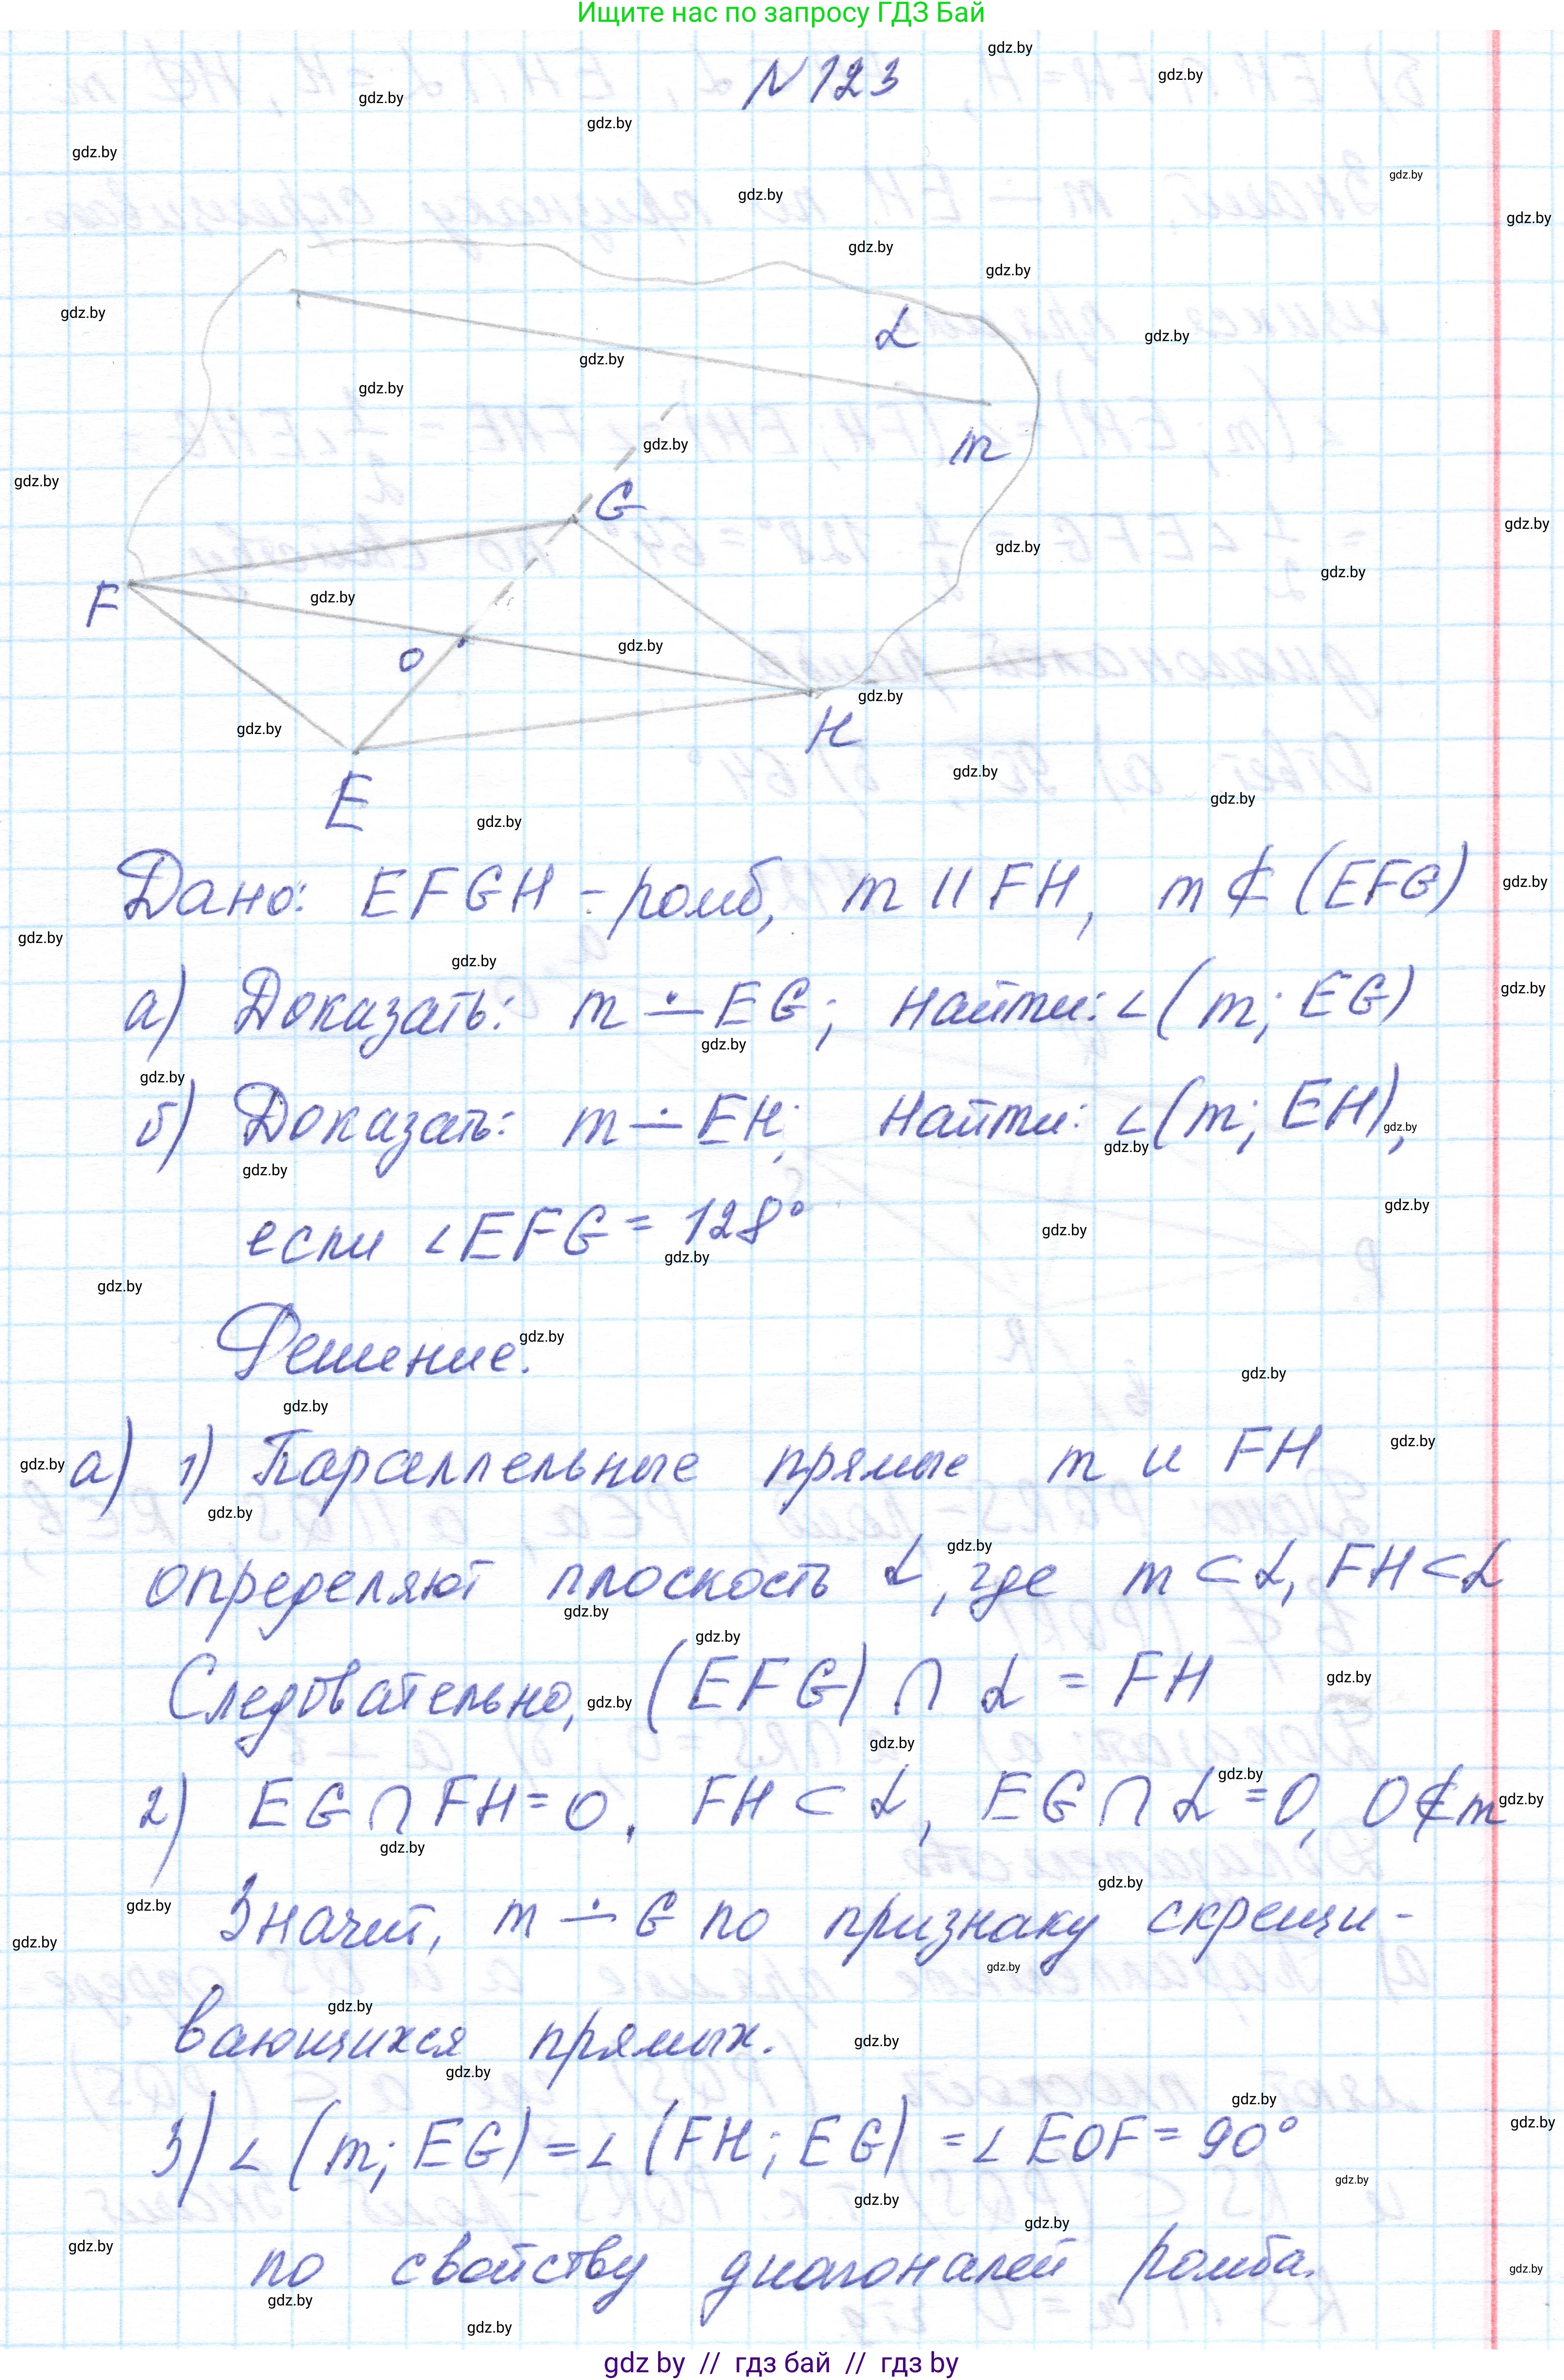 Ищите нас по запросу ГДЗ Бай
N 123
α
m
G
F
O
H
E
Дано: EFGH - ромб, m || FH, m ⊄ (EFG)
а) Доказать: m ∸ EG; Найти: ∠(m; EG)
б) Доказать: m ∸ EH; Найти: ∠(m; EH),
если ∠EFG = 128°
Решение.
а) 1) Параллельные прямые m и FH
определяют плоскость α, где m ⊂ α, FH ⊂ α
Следовательно, (EFG) ∩ α = FH
2) EG ∩ FH = O. FH ⊂ α, EG ∩ α = O, O ∉ m
Значит, m ∸ G по признаку скрещи-
вающихся прямых.
3) ∠(m; EG) = ∠(FH; EG) = ∠EOF = 90°
по свойству диагоналей ромба.
gdz by // гдз бай // гдз by